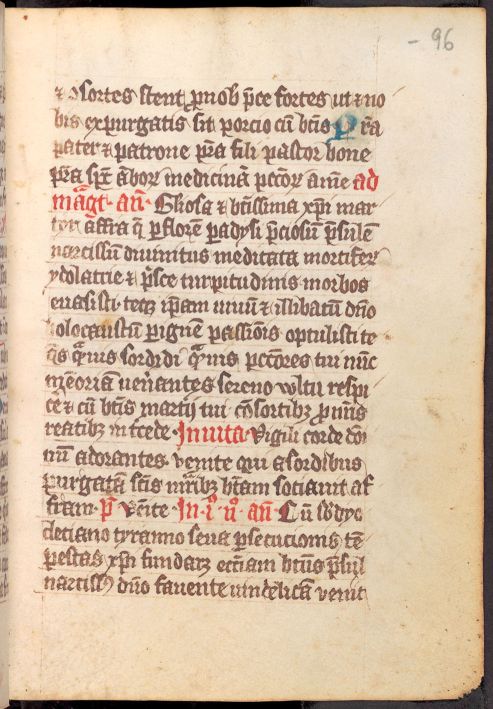 - 96
& ɔsortes stent p̱ nob̄ pc̄e fortes ut & no
bis expurgatis sit porcio cū btīs P r̄a
pater & patrone pr̄a fili pastor bone
pr̄a spc̄ āboꝝ medicinā pcc̄oꝝ amē ad
māgt. an̄. Gl'osa & btīssima xp̄i mar
tyr affra q̄ p̱ florē padysi pc̄iosū p̄sulē
narcissū divinitus meditata mortiferꝝ
ydolatrie & p̄sce turpitudinis morbos
euasisti teqꝫ ip̄am uiuū & illibatū dn̄o
holocaustū pīguē passiōis optulisti te
q̄s q̄uis sordidi q̄uis pcc̄ores tui nūc
memoriā uen̄antes sereno vultu respi
ce & cū btīs martiꝝ tui cōsortibꝫ p̱ n̄r̄is
reatibꝫ int̄cede. Inuita. Vigili corde dōi
nū adorantes. venite qui a sordibus
purgatā sc̄is mr̄ibꝫ btām sociauit af
fram. p̄s Venite. In. i͛. n͛. an̄. Cū s̄b dyo
cleciano tyranno seua p̱secucionis tē
pestas xp̄i fundarꝫ ecc̄iam btūs p̄sul
narcissꝰ dn̄o fauente uindelicā venit